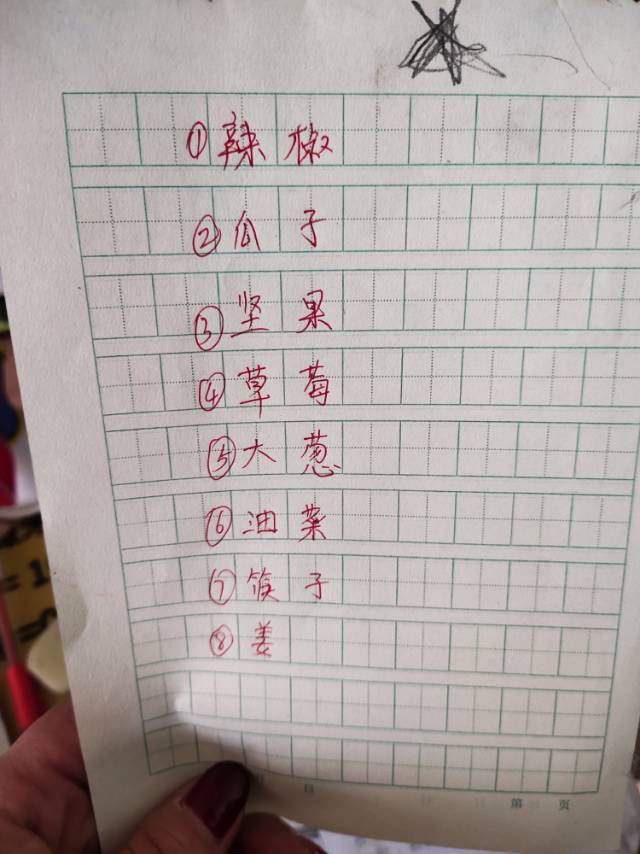 ①辣椒
②瓜子
③坚果
④草莓
⑤大葱
⑥油菜
⑦筷子
⑧姜
日 第 页